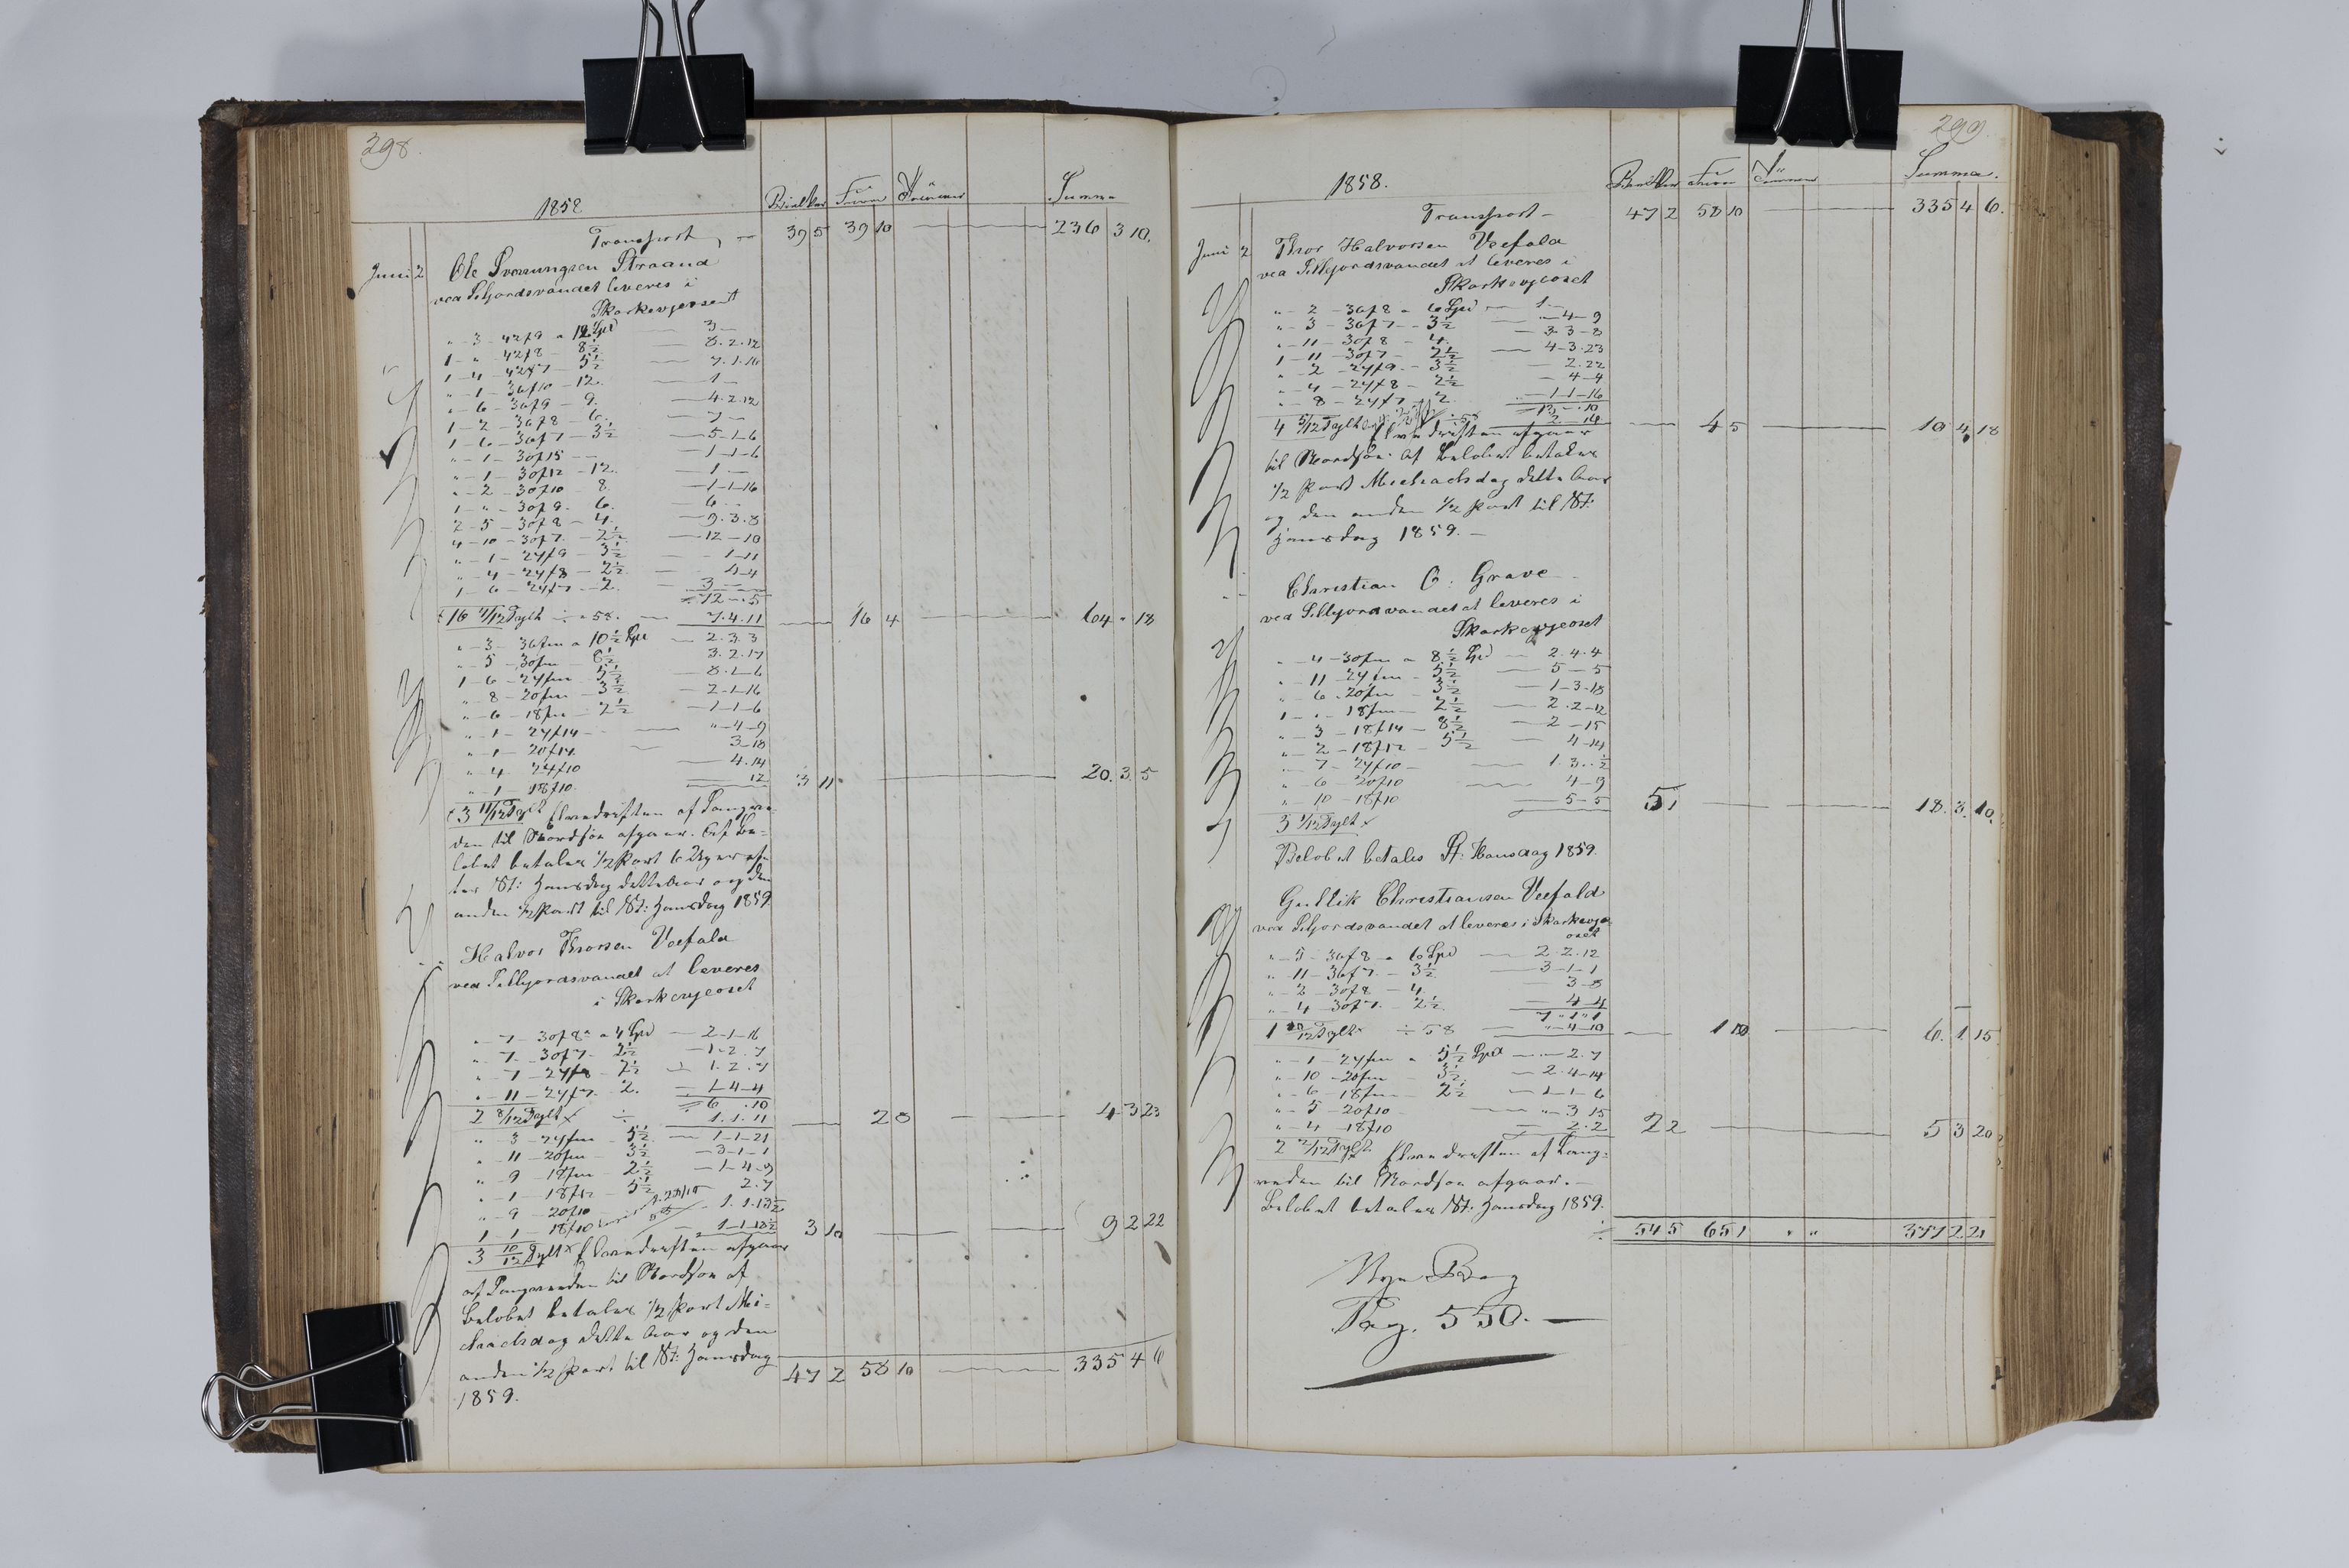 298.
1858 Bielker Furu Summa
Transport 39 5 39 10 236 3 10.
Juni 2 Ole Sverrungsen Straand
ved Seljordsvandet leveres i
Skarkevjeoset
" - 3 - 42f9 a 12 Lpd — 3 —
1 - " - 42f8 - 8½ — 8.2.12
1 - 4 - 42f7 - 5½ — 7.1.16
" - 1 - 36f10 - 12. — 1 —
" - 6 - 36f9 - 9. — 4.2.12
1 - 2 - 36f8 - 6. — 7 —
1 - 6 - 36f7 - 3½ — 5-1-6
" - 1 - 30f15 — 1-1-6
" - 1 - 30f12 - 12. — 1 —
" - 2 - 30f10 - 8. — 1-1-16
1 - " - 30f9. 6. — 6 —
2 - 5 - 30f8 - 4. — 9.3.8
4 - 10 - 30f7. - 2½ — 12 - 10
" - 1 - 24f9 - 3½ — 1-11
" - 4 - 24f8 - 2½ — 4-4
1 - 6 - 24f7 - 2. — 3 —
72 - 5
16 4/12 Tylt ÷ 58. — 7.4.11 16 4 64 " 18
" - 3 - 36fm a 10½ Lpd — 2.3.3
" - 5 - 30fm - 8½ 3.2.17
1 - 6 - 24fm 5½ — 8.1-6
" - 8 - 20fm - 3½ — 2-1-16
" - 6 - 18fm - 2½ — 1-1-6
" - 1 - 24f14 - — " - 4 - 9
" - 1 - 20f14 — 3-18
" - 4 24f10 — 4.14
" - 1 - 18f10. — 12 3 11 20. 3. 5
3 11/12 Tylt Elvedriften af Langve-
den til Nordsøe afgaar. Af Be-
løbet betales ½ Part 6 Uger ef-
ter St: Hansdag dette Aar og den
anden ½ Part til St: Hansdag 1859.
Halvor Thorsen Veefald
ved Sillejordsvandet at leveres
i Skarkevjeoset
" - 7 - 30f8 a 4 Lpd — 2-1-16
" - 7 - 30f7 - 2½ — 1-2.7
" - 7 - 24f8 - 2½ — 1.2.7
" - 11 - 24f7. - 2. — 1-4-4
6 .10
2 8/12 Tylt ÷ 1.1.11 2 8 4 3 23
" - 3 - 24fm - 5½ — 1-1-21
" - 11 - 20fm - 3½ — 3-1-1
" - 9 - 18fm - 2½ — 1-4-9
" - 1 - 18f12 - 5½ 2.7
" - 9 - 20f10 1.1.13½
1 1 - 18f10 1-1-13½ 3 10 9 2 22
3 10/12 Tylt Elvedriften afgaar
af Langveeden til Nordsøe af
Beløbet betales ½ Part Mi-
chaelsdag dette Aar og den
anden ½ Part til St: Hansdag
1859.
47 2 58 10 335 4 6
299.
1858. Bielker Furu Summa.
Transport — 47 2 58 10 335 4 6.
Juni 2 Thor Halvorsen Veefald
ved Sillejordsvandet at leveres i
Skarkevjeoset
" - 2 - 36f8 - 6 Lpd — 1 —
" - 3 - 36f7 - 3½ — " - 4 - 9
" - 11 - 30f8 - 4. — 3-3-8
1 - 11 - 30f7 - 2½ — 4-3.23
" - 2 - 24f9. - 3½ — 2.22
" - 4 - 24f8 - 2½ — 4-4
" - 8 - 24f7 - 2. — 1-1-16
12 - .10
4 5/12 Tylt ÷ 58 4 5 10 4 18
Elvedriften afgaar
til Nordsøe. Af Beløbet betales
½ Part Michaelsdag dette Aar
og den anden ½ Part til St:
Hansdag 1859. —
Christian O: Grave
ved Sillejordvandet at leveres i
Skarkevjeoset
" - 4 - 30fm - 8½ Lpd — 2.4.4
" - 11 - 24fm - 5½ — 5 - 5
" - 6 . 20fm - 3½ — 1-3-18
1 - " - 18fm - 2½ — 2.2-12
" - 3 - 18f14 - 8½ — 2 - 15
" - 2 - 18f12 - 5½ — 4-14
" - 7 - 24f10 - — 1.3..½
" - 6 20f10 — 4-9
" - 10 - 18f10 — 5-5 5 1 18. 3. 10.
5 1/12 Tylt
Beløbet betales St. Hansdag 1859.
Gullik Christiansen Veefald
ved Seljordsvandet at leveres i Skarkevje-
oset
" - 5 - 36f8 - 6 Lpd — 2.2.12
" - 11 - 36f7. - 3½ — 3-1-1
" - 2 30f8 - 4. — 3-8
" - 4 - 30f7. 2½ — 4-4
7 " 1 " 1
1 10/12 Tylt ÷ 58 — " - 4 - 10 1 10 6. 1 15
" - 1 - 24fm a 5½ Lpd — 2.7
" - 10 - 20fm - 3½ — 2.4-14
" - 6 - 18fm - 2½ — 1-1-6
" - 5 - 20f10 — " - 3 15
" - 4 - 18f10 — 2.2 2 2 5 3 20
2 2/12 Tylt Elvedriften af Lang-
veden til Nordsøe afgaar. —
Beløbet betales St: Hansdag 1859.
54 5 65 1 " " 377 2 21
Nye Bog
Pag. 550. —